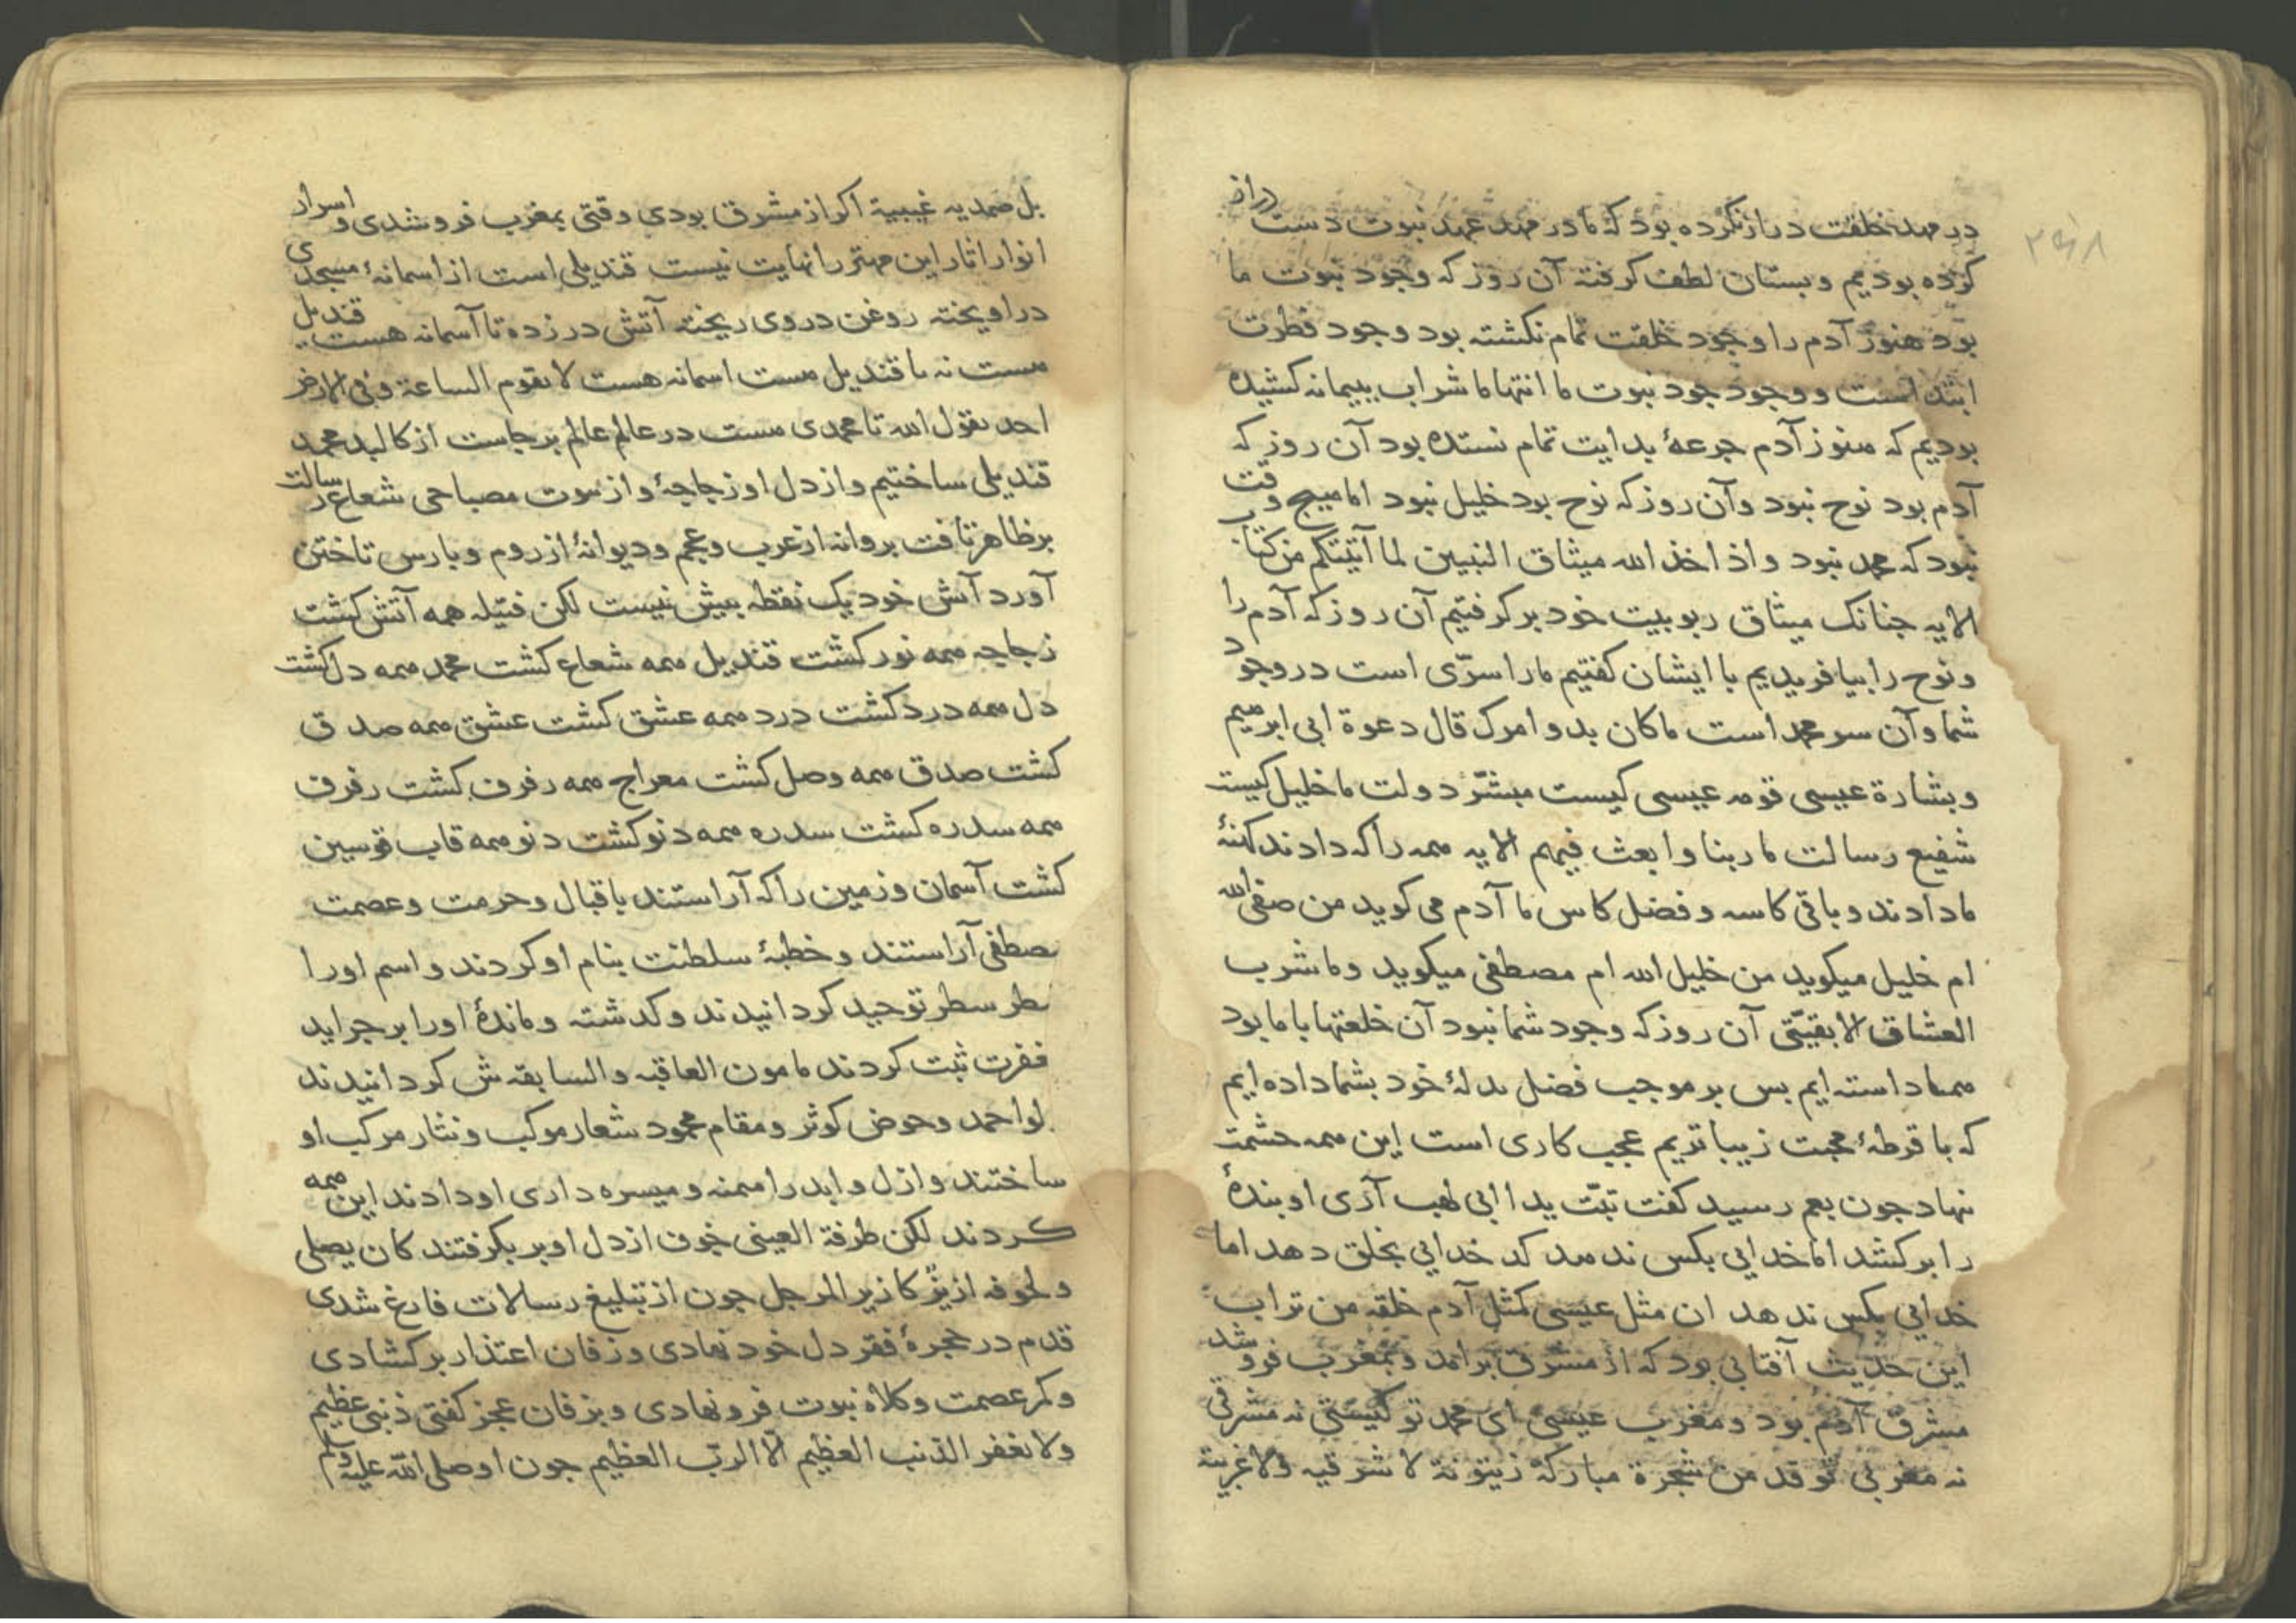 ۲۶۸
در مهد خلقت دراز نکرده بود که ما در مهد عهد نبوت دست دراز
کرده بودیم و بستان لطف کرفته آن روز که وجود نبوت ما
بود هنوز آدم را وجود خلقت تمام نکشته بود وجود فطرت
ابتداست و وجود جود نبوت ما انتها ما شراب بپیمانه کشیده
بودیم که هنوز آدم جرعهٔ بدایت تمام نستده بود آن روز که
آدم بود نوح نبود و آن روز که نوح بود خلیل نبود اما هیچ وقت
نبود که محمد نبود و اذ اخذ الله میثاق النبیین لما آتیتکم من کتاب
الایه جنانک میثاق ربوبیت خود بر کرفتیم آن روز که آدم را
و نوح را بیافریدیم با ایشان کفتیم ما را سرّی است در وجود
شما و آن سر محمد است ما کان بدو امرک قال دعوة ابی ابرهیم
و بشارة عیسی قومه عیسی کیست مبشّر دولت ما خلیل کیست
شفیع رسالت ما ربنا وابعث فیهم الایه همه را که دادند کنهٔ
ما دادند و باقی کاسه و فضل کاس ما آدم می کوید من صفی الله
ام خلیل میکوید من خلیل الله ام مصطفی میکوید وما شرب
العشاق الا بقیّتی آن روز که وجود شما نبود آن خلعتها با ما بود
داسته ایم بس بر موجب فضل بدلهٔ خود بشما داده ایم
که با قرطهٔ محبت زیباتریم عجب کاری است این همه حشمت
نهاد جون بعم رسید کفت تبّت یدا ابی لهب آری او بندهٔ
را برکشد اما خدایی بکس ندهد کد خدایی بخلق دهد اما
خدایی بکس ندهد ان مثل عیسی کمثل آدم خلقه من تراب
این حدیث آفتابی بود که از مشرق برآمد و بمغرب فرو شد
مشرق آدم بود و مغرب عیسی ای محمد تو کیستی نه مشرقی
نه مغربی توقد من شجرة مبارکة زیتونة لا شرقیه ولا غربیة
بل صمدیه غیبیة اکر از مشرق بودی وقتی بمغرب فرو شدی و اسرار
انوار اثار این مهتر را نهایت نیست قندیلی است از اسمانهٔ مسجدی
در اویخته روغن در وی ریخته آتش در زده تا آسمانه هست قندیل
هست نه با قندیل هست اسمانه هست لا یقوم الساعة وفی الارض
احد یقول الله تا محمدی هست در عالم عالم برجاست از کالبد محمد
قندیلی ساختیم و از دل او زجاجهٔ و از نبوت مصباحی شعاع رسالت
بر ظاهر تافت بروانه از عرب و عجم و دیوانهٔ از روم و بارس تاختن
آورد آتش خود یک نقطه بیش نیست لکن فتیله همه آتش کشت
زجاجه همه نور کشت قندیل همه شعاع کشت محمد همه دل کشت
دل همه درد کشت درد همه عشق کشت عشق همه صدق
کشت صدق همه وصل کشت معراج همه رفرف کشت رفرف
همه سدره کشت سدره همه دنو کشت دنو همه قاب قوسین
کشت آسمان و زمین را که آراستند باقبال و حرمت و عصمت
مصطفی آراستند و خطبهٔ سلطنت بنام او کردند و اسم او را
سطر توحید کردانیدند و کدشته و ماندهٔ او را بر جراید
ثبت کردند مامون العاقبه والسابقه ش کردانیدند
لوا حمد و حوض کوثر و مقام محمود شعار موکب و نثار مرکب او
ساختند و ازل و ابد را میمنه و میسره داری او دادند این همه
کردند لکن طرفة العینی خوف از دل او بر نکرفتند کان یصلی
ولجوفه ازیز کازیز المرجل جون از تبلیغ رسالات فارغ شدی
قدم در حجرهٔ فقر دل خود نهادی و زفان اعتذار بر کشادی
و کمر عصمت و کلاه نبوت فرو نهادی و بزفان عجز کفتی ذنبی عظیم
ولا یغفر الذنب العظیم الّا الربّ العظیم جون او صلی الله علیه وسلم